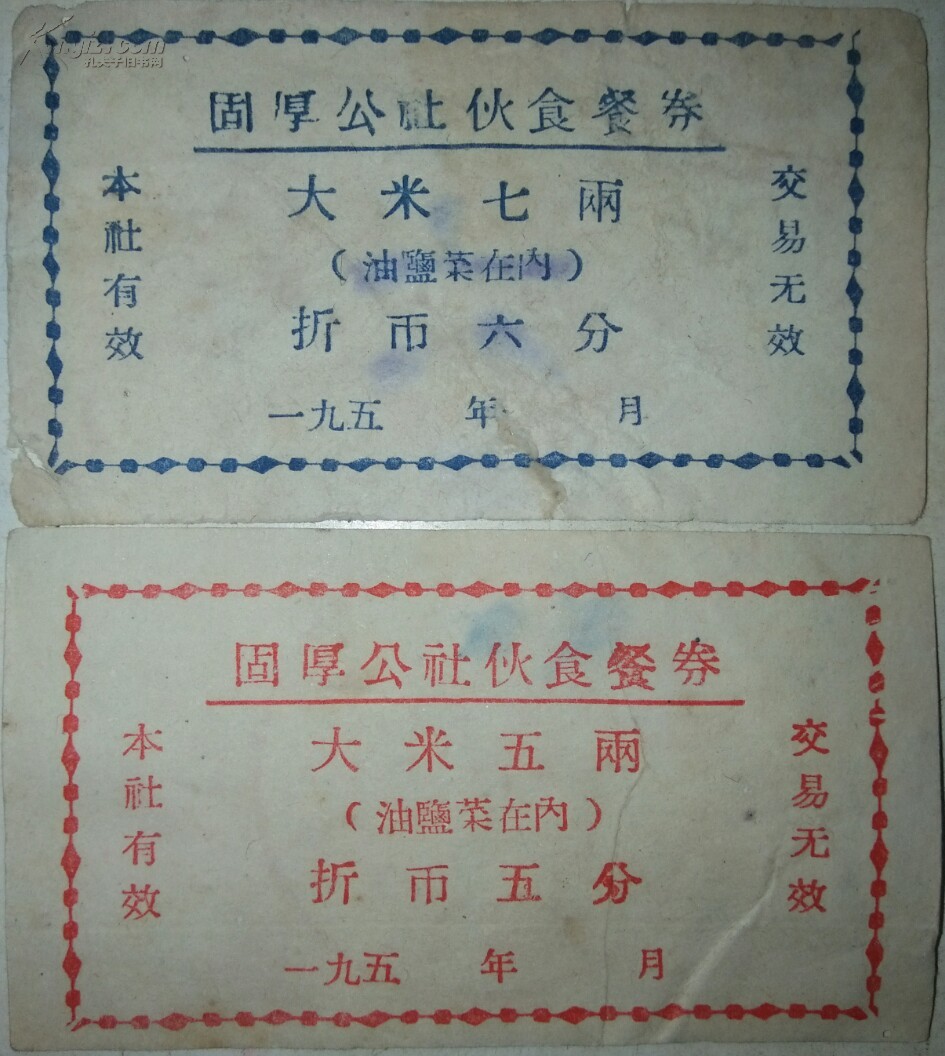 孔夫子旧书网
固厚公社伙食餐券
本社有效
大米七兩
(油鹽菜在內)
折币六分
交易无效
一九五 年 月
固厚公社伙食餐券
本社有效
大米五兩
(油鹽菜在內)
折币五分
交易无效
一九五 年 月